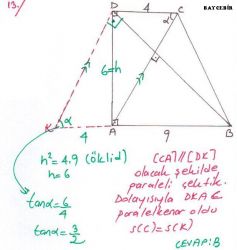 13.)
BAY CEBİR
D
4
C
α
6=h
K
α
4
A
9
B
h²=4.9 (öklid)
h=6
tanα=6/4
tanα=3/2
[CA]//[DK]
olacak şekilde
paraleli çektik.
Dolayısıyla DKAC
paralelkenar oldu
s(C)=s(K)
CEVAP:B